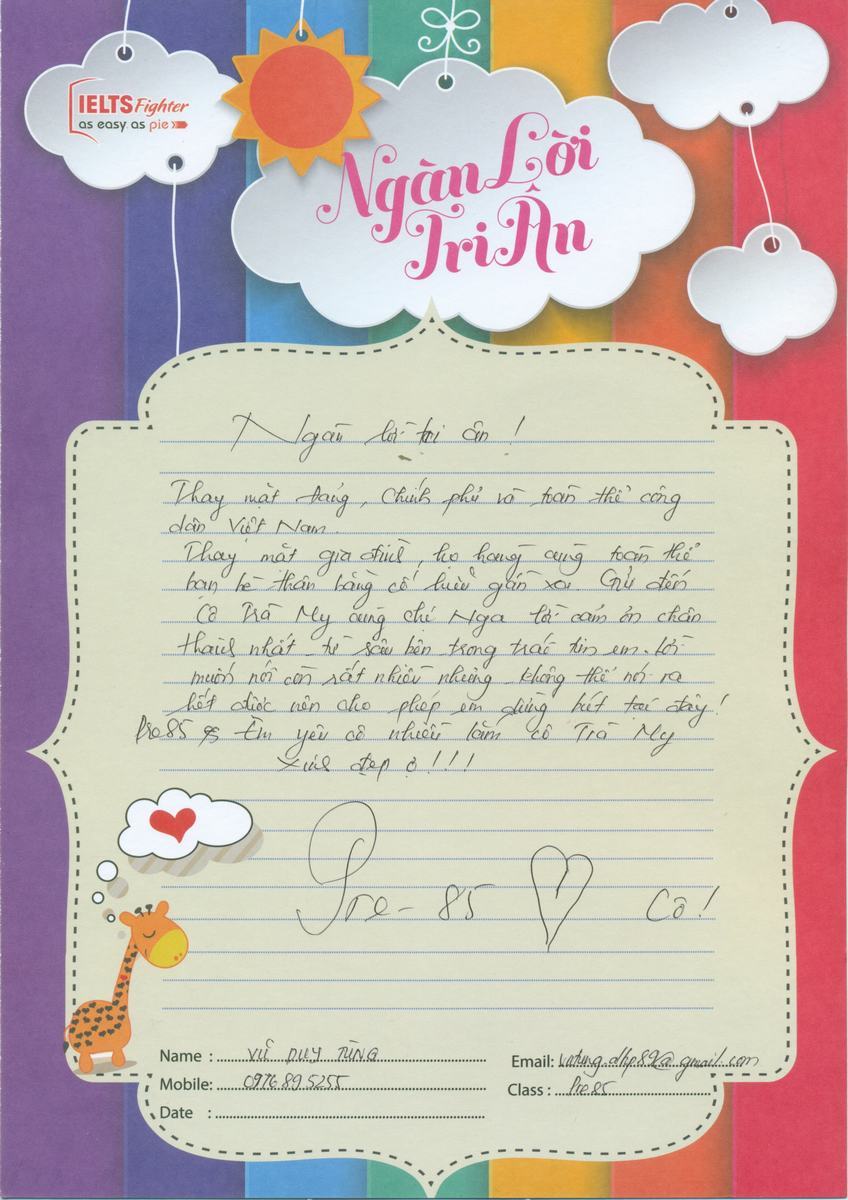 IELTS Fighter
as easy as pie
Ngàn Lời
Tri Ân
Ngàn lời tri ân !
Thay mặt Đảng, Chính phủ và toàn thể công
dân Việt Nam.
Thay mặt gia đình, họ hàng cùng toàn thể
bạn bè thân bằng cố hữu gần xa. Gửi đến
Cô Trà My cùng chị Nga lời cảm ơn chân
thành nhất từ sâu bên trong trái tim em. Lời
muốn nói còn rất nhiều nhưng không thể nói ra
hết được nên cho phép em dừng bút tại đây!
Pre85 Em yêu cô nhiều lắm cô Trà My
xinh đẹp ơ!!!
Pre-85 Cô!
Name : VŨ DUY TÙNG
Email: @gmail.com
Mobile: 0976895255
Class : Pre85
Date :